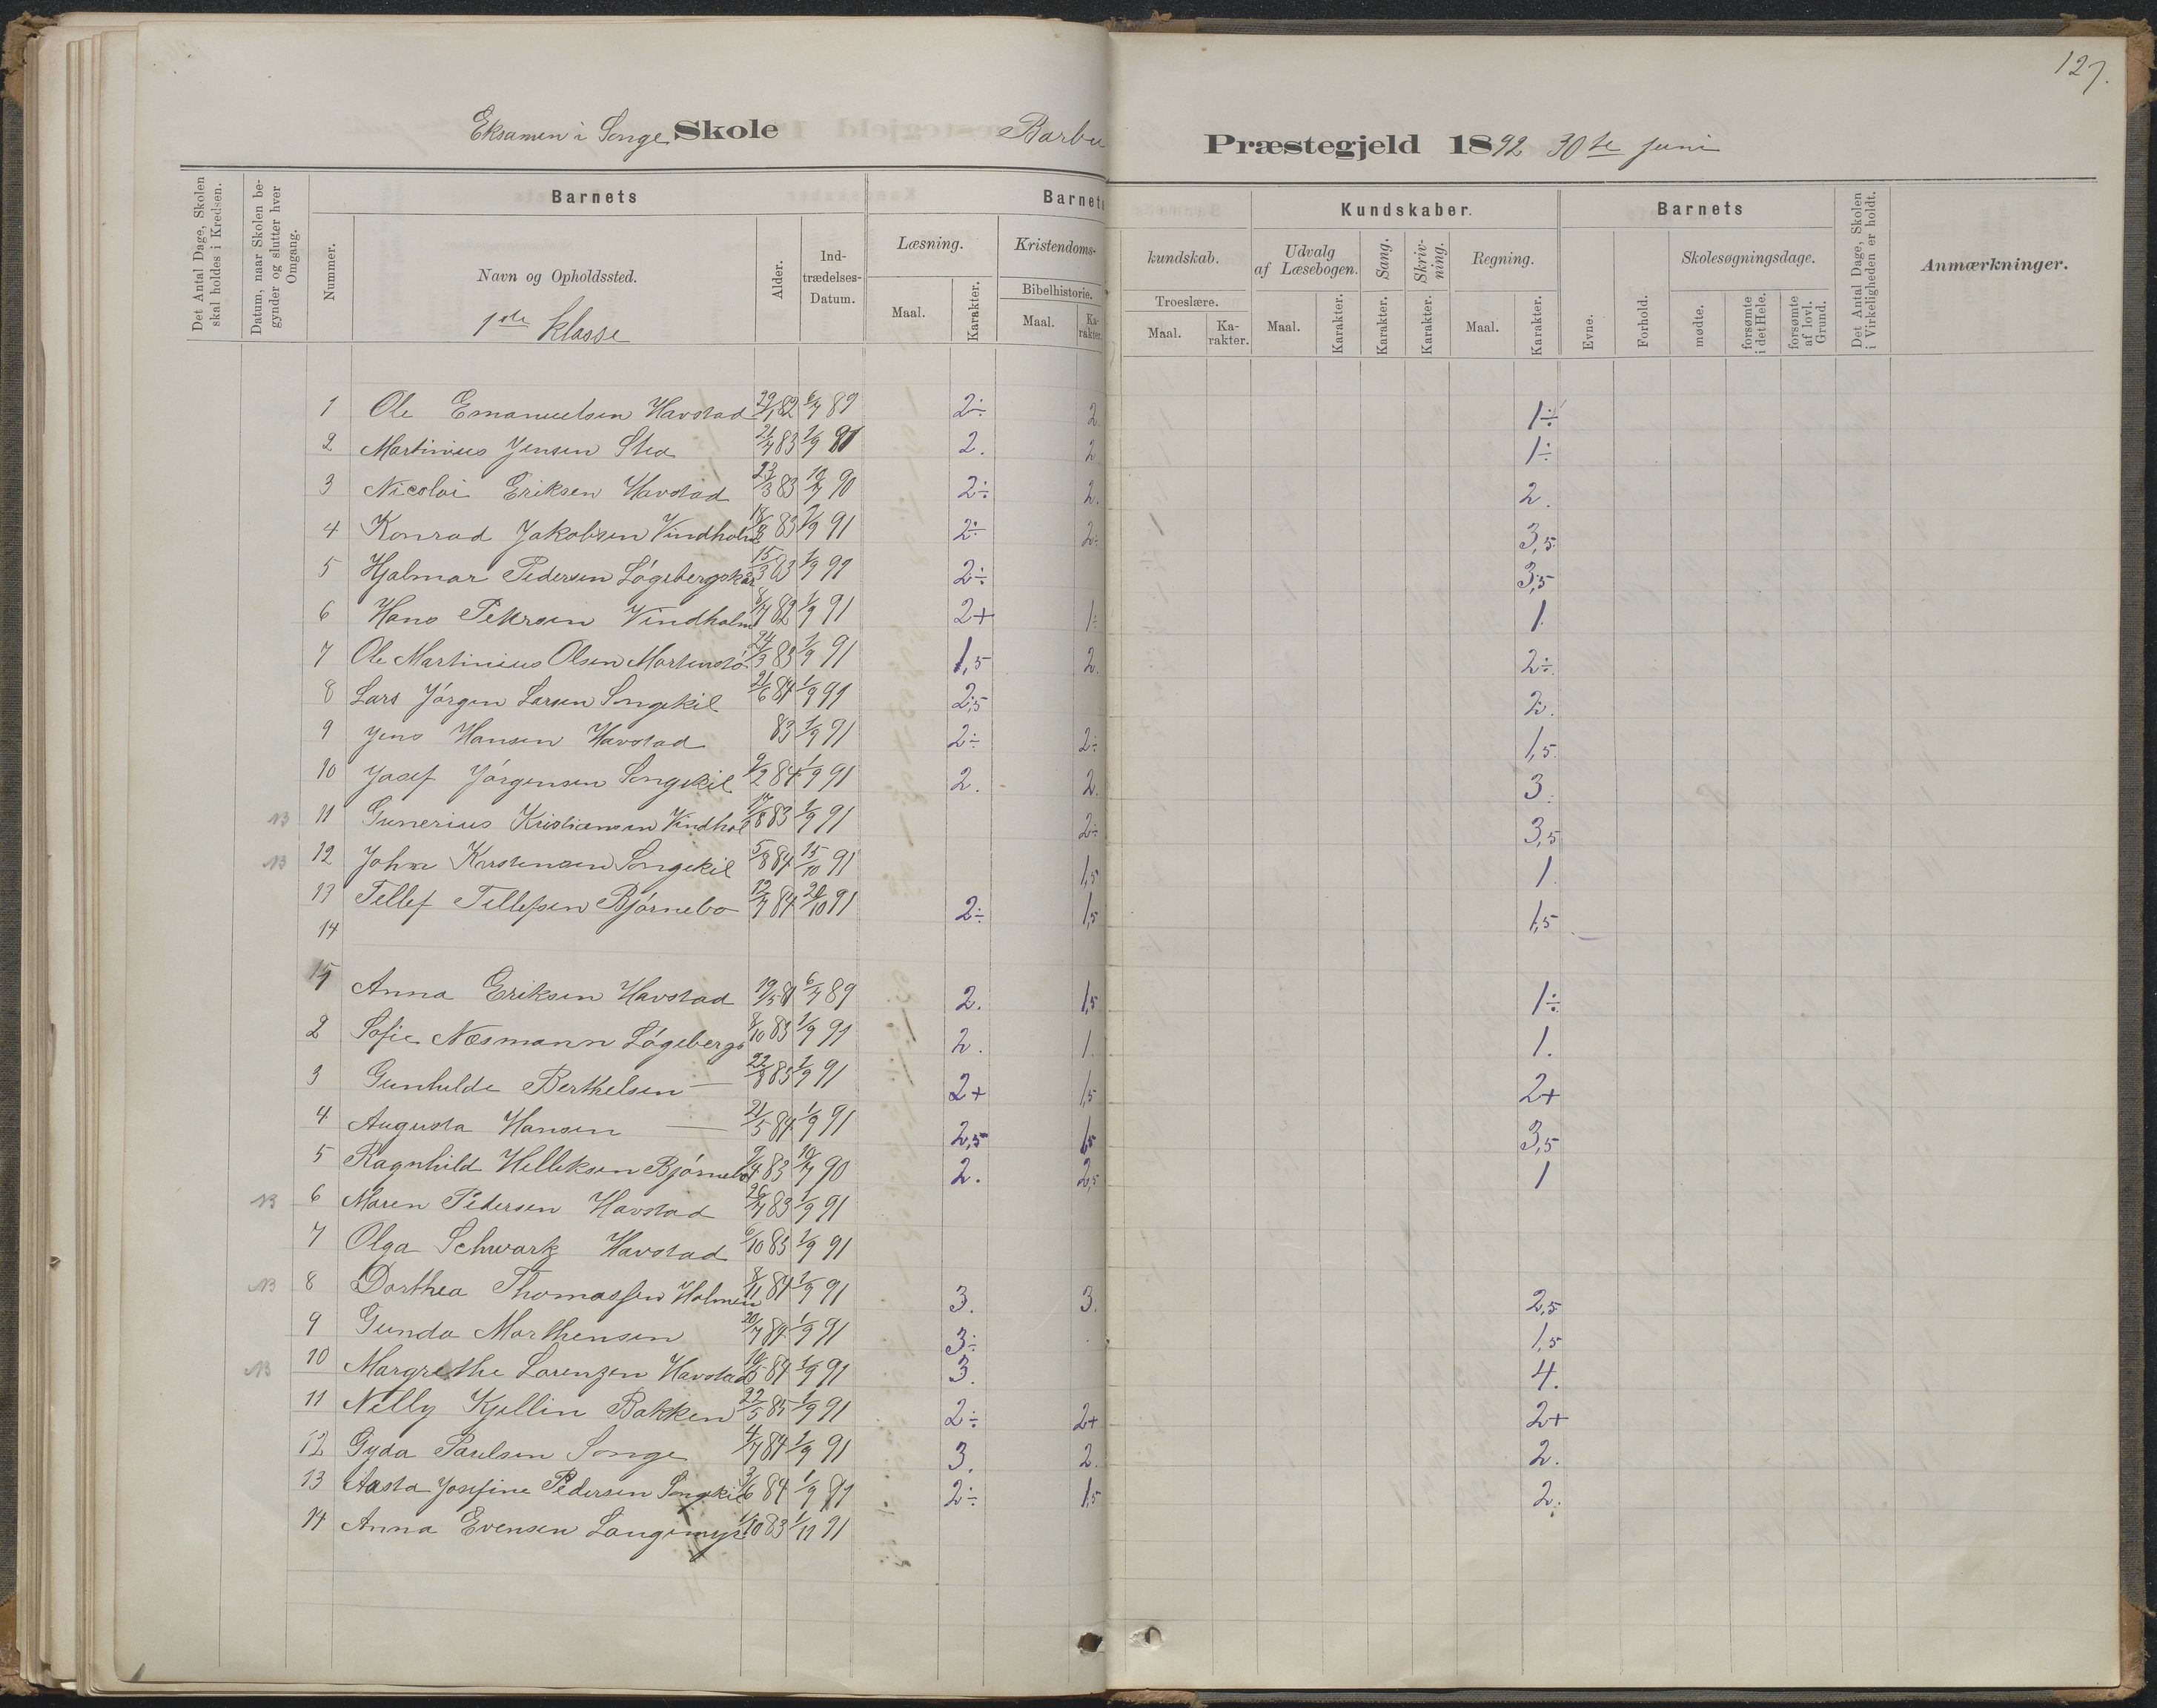 127.
Eksamen i Songe Skole Barbu Præstegjeld 1892 30te juni
Det Antal Dage, Skolen skal holdes i Kredsen.
Datum, naar Skolen begynder og slutter hver Omgang.
Barnets
Nummer.
Navn og Opholdssted.
1ste klasse
Alder.
Indtrædelses-Datum.
Barnets
Læsning.
Maal.
Karakter.
Kristendoms-
Bibelhistorie.
Maal.
Karakter.
Kundskaber.
kundskab.
Troeslære.
Maal.
Karakter.
Udvalg af Læsebogen.
Maal.
Karakter.
Sang.
Karakter.
Skrivning.
Karakter.
Regning.
Maal.
Karakter.
Barnets
Evne.
Forhold.
Skolesøgningsdage.
mødte.
forsømte i det Hele.
forsømte af lovl. Grund.
Det Antal Dage, Skolen i Virkeligheden er holdt.
Anmærkninger.
1 Ole Emanuelsen Havstad 82 6/7 89 2÷ 2 1÷
2 Martinius Jensen 83 1/9 91 2. 2 1÷
3 Nicolai Eriksen Havstad 23/3 83 10/7 90 2÷ 2. 2.
4 Konrad Jakobsen Vindholm 83 1/9 91 2÷ 2÷ 3,5
5 Hjalmar Pedersen 15/3 83 1/9 91 2÷ 3,5
6 Hans Petersen Vindholm 82 1/9 91 2+ 1÷ 1.
7 Ole Martinius Olsen 83 1/9 91 1,5 2. 2÷
8 Lars Jörgen Larsen Songekil 21/6 84 1/9 91 2,5 2.
9 Jens Hansen Havstad 83 1/9 91 2÷ 2÷ 1,5
10 Josef Jörgensen Songekil 9/2 84 1/9 91 2. 2. 3.
NB 11 Gunerius Kristiansen Vindhol 17/8 83 1/9 91 2÷ 3,5
NB 12 Johan Karstensen Songekil 5/8 84 15/10 91 1,5 1.
13 Tellef Tellefsen Björnebo 12/7 84 20/10 91 2÷ 1,5 1,5
14
1 Anna Eriksen Havstad 19/5 81 6/7 89 2. 1,5 1÷
2 Sofie Næsmann Lögeberg 8/10 83 1/9 91 2. 1. 1.
3 Gunhilde Berthelsen — 83 1/9 91 2+ 1,5 2+
4 Augusta Hansen — 21/5 84 1/9 91 2,5 1,5 3,5
5 Ragnhild Helleksen Björnebo 9/4 83 10/7 90 2. 2,5 1
NB 6 Maren Pedersen Havstad 26/7 83 1/9 91
7 Olga Schwartz Havstad 6/10 83 1/9 91
NB 8 Dorthea Thomassen Holmen 8/11 84 1/9 91 3. 3. 2,5
9 Gunda Marthensen 20/7 84 1/9 91 3÷ 1,5
NB 10 Margrethe Lorenzen Havstad 84 1/9 91 3. 4.
11 Nelly Kjellin Bakken 22/5 85 1/9 91 2÷ 2+ 2+
12 Gyda Paulsen Songe 4/7 84 1/9 91 3. 2. 2.
13 Aasta Josefine Pedersen Songekil 3/6 84 1/9 91 2÷ 1,5 2.
14 Anna Evensen Langemyr 1/10 83 1/11 91